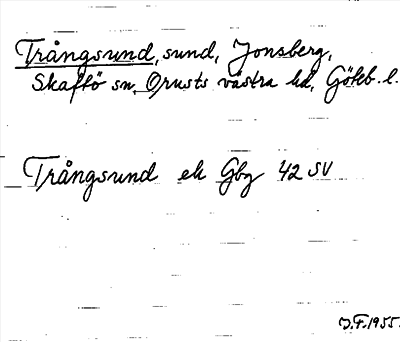 Trångsund, sund, Jonsberg,
Skaftö sn, Orusts västra hd, Göteb. l.
Trångsund ek Gbg 42 SV
J.F. 1955.